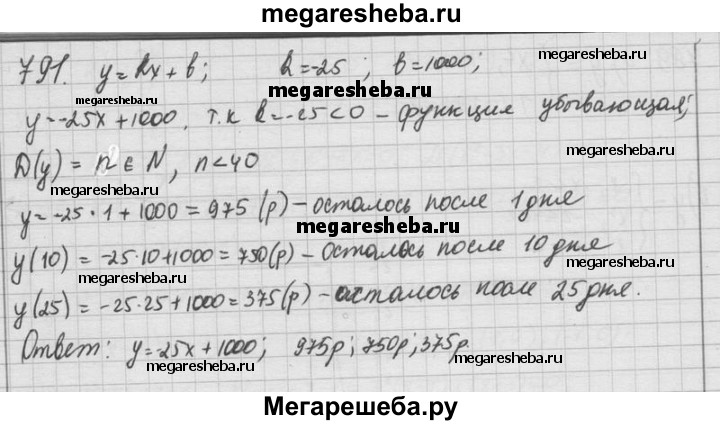 megaresheba.ru
791. y=kx+b; k=-25; b=1000;
megaresheba.ru megaresheba.ru
megaresheba.ru
y=-25x+1000, т.к k=-25<0 - функция убывающая;
megaresheba.ru
D(y) = n ∈ N, n<40
megaresheba.ru megaresheba.ru
y=-25·1+1000=975(р) - осталось после 1 дня
megaresheba.ru
y(10)=-25·10+1000=750(р) - осталось после 10 дня
megaresheba.ru megaresheba.ru
y(25)=-25·25+1000=375(р) - осталось после 25 дня.
megaresheba.ru
Ответ: y=-25x+1000; 975р; 750р; 375р.
megaresheba.ru megaresheba.ru
Мегарешеба.ру